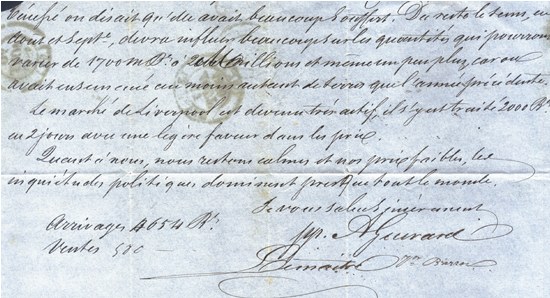 on disait qu'elle avait beaucoup souffert. Du reste le tems, en
août et Septre, devra influer beaucoup sur les quantités qui pourront
varier de 1700 m Bs à 2 Millions et même un peu plus, car on
avait ensemencé au moins autant de terres que l'année précédente.
Le marché de Liverpool est devenu très actif, il s'y est traité 2000 Bs
en 2 jours avec une légère faveur dans les prix
Quant à nous, nous restons calmes et nos prix faibles, les
inquiétudes politiques dominent presque tout le monde.
Je vous salue sincèrement
Arrivages 4654 Bs
Ventes 500
pp. A Guérard
Lemaitre